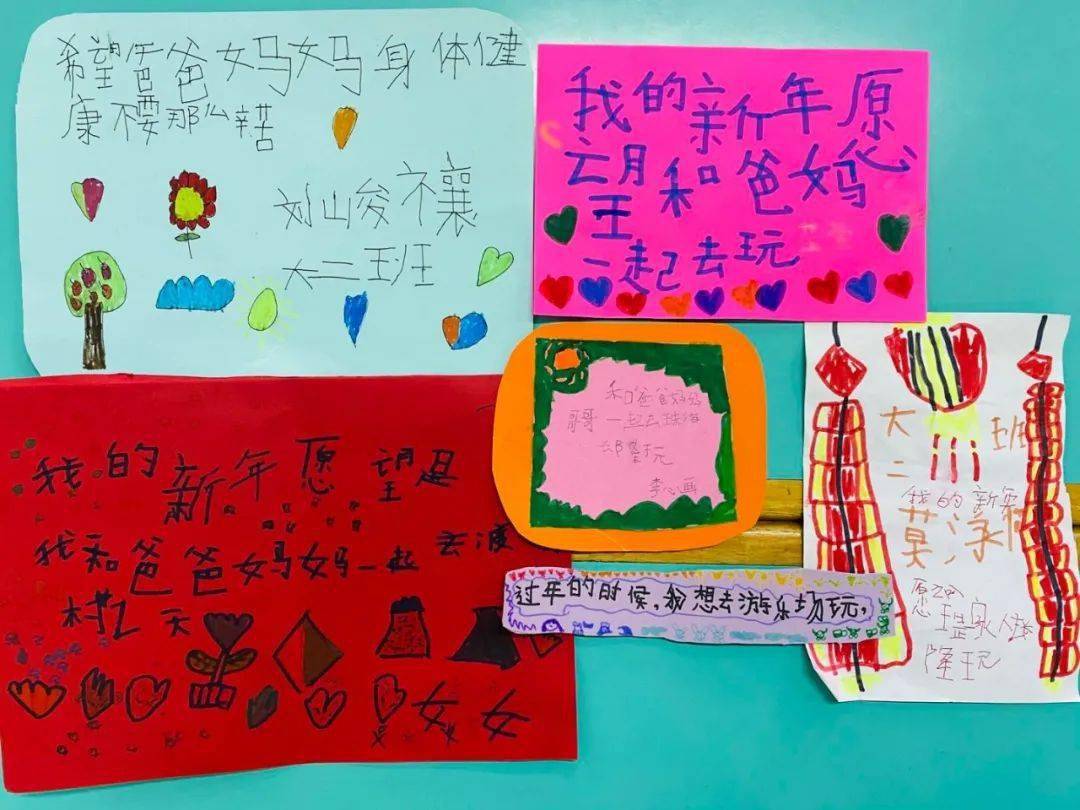 希望爸爸妈妈身体健
康不要那么辛苦
刘山俊禳
大二班
我的新年愿
望和爸妈
一起去玩
我的新年愿望是
我和爸爸妈妈一起去渡
村 天
女女
和爸爸妈妈
哥哥一起去珠海
那里玩
李心画
过年的时候,我想去游乐场玩,
大二班
我的新年
莫
愿望 家人
隆玩